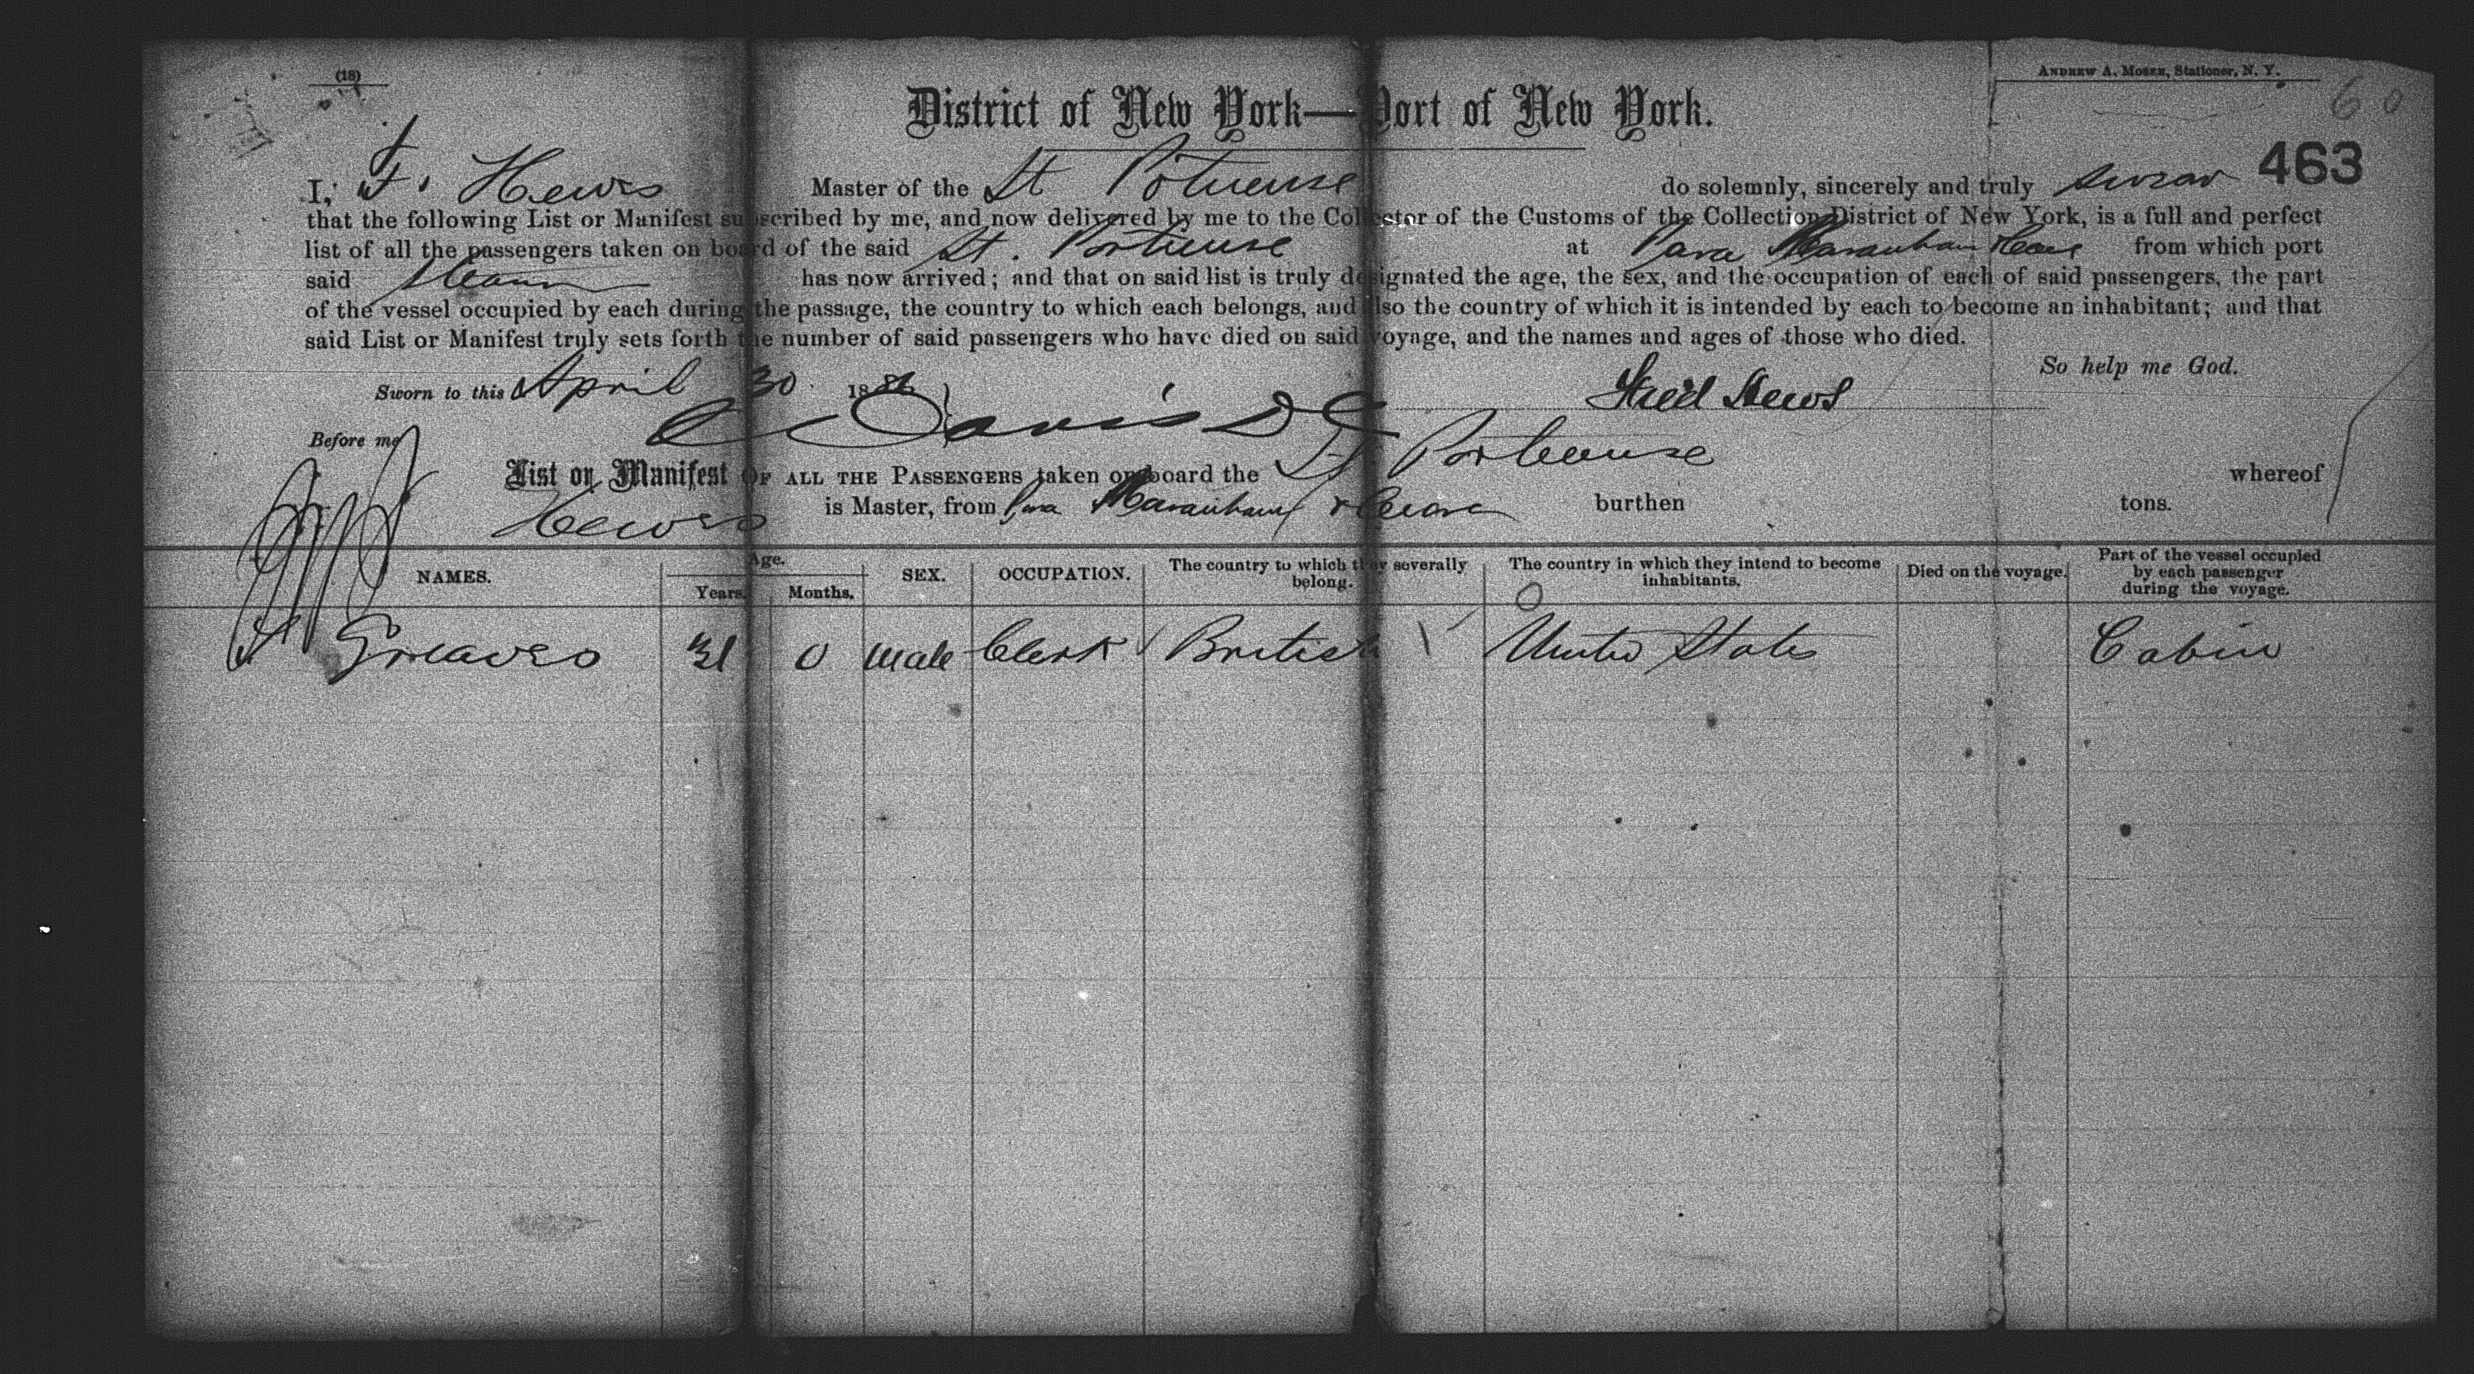 (18)
ANDREW A. MOSER, Stationer, N. Y.
60
District of New York—Port of New York.
463
I, F. Hews Master of the St Potuense do solemnly, sincerely and truly swear
that the following List or Manifest subscribed by me, and now delivered by me to the Collector of the Customs of the Collection District of New York, is a full and perfect
list of all the passengers taken on board of the said St. Portuense at Para Maranham & Ceara from which port
said Steamer has now arrived; and that on said list is truly designated the age, the sex, and the occupation of each of said passengers, the part
of the vessel occupied by each during the passage, the country to which each belongs, and also the country of which it is intended by each to become an inhabitant; and that
said List or Manifest truly sets forth the number of said passengers who have died on said voyage, and the names and ages of those who died.
So help me God.
Sworn to this April 30 18
Fred Hews
Before me Davis D C
List or Manifest OF ALL THE PASSENGERS taken on board the St Portuense whereof
Hewes is Master, from Para Maranham & Ceara burthen tons.
NAMES. Age. Years. Months. SEX. OCCUPATION. The country to which they severally belong. The country in which they intend to become inhabitants. Died on the voyage. Part of the vessel occupied by each passenger during the voyage.
Greaves 31 0 Male Clerk British United States Cabin